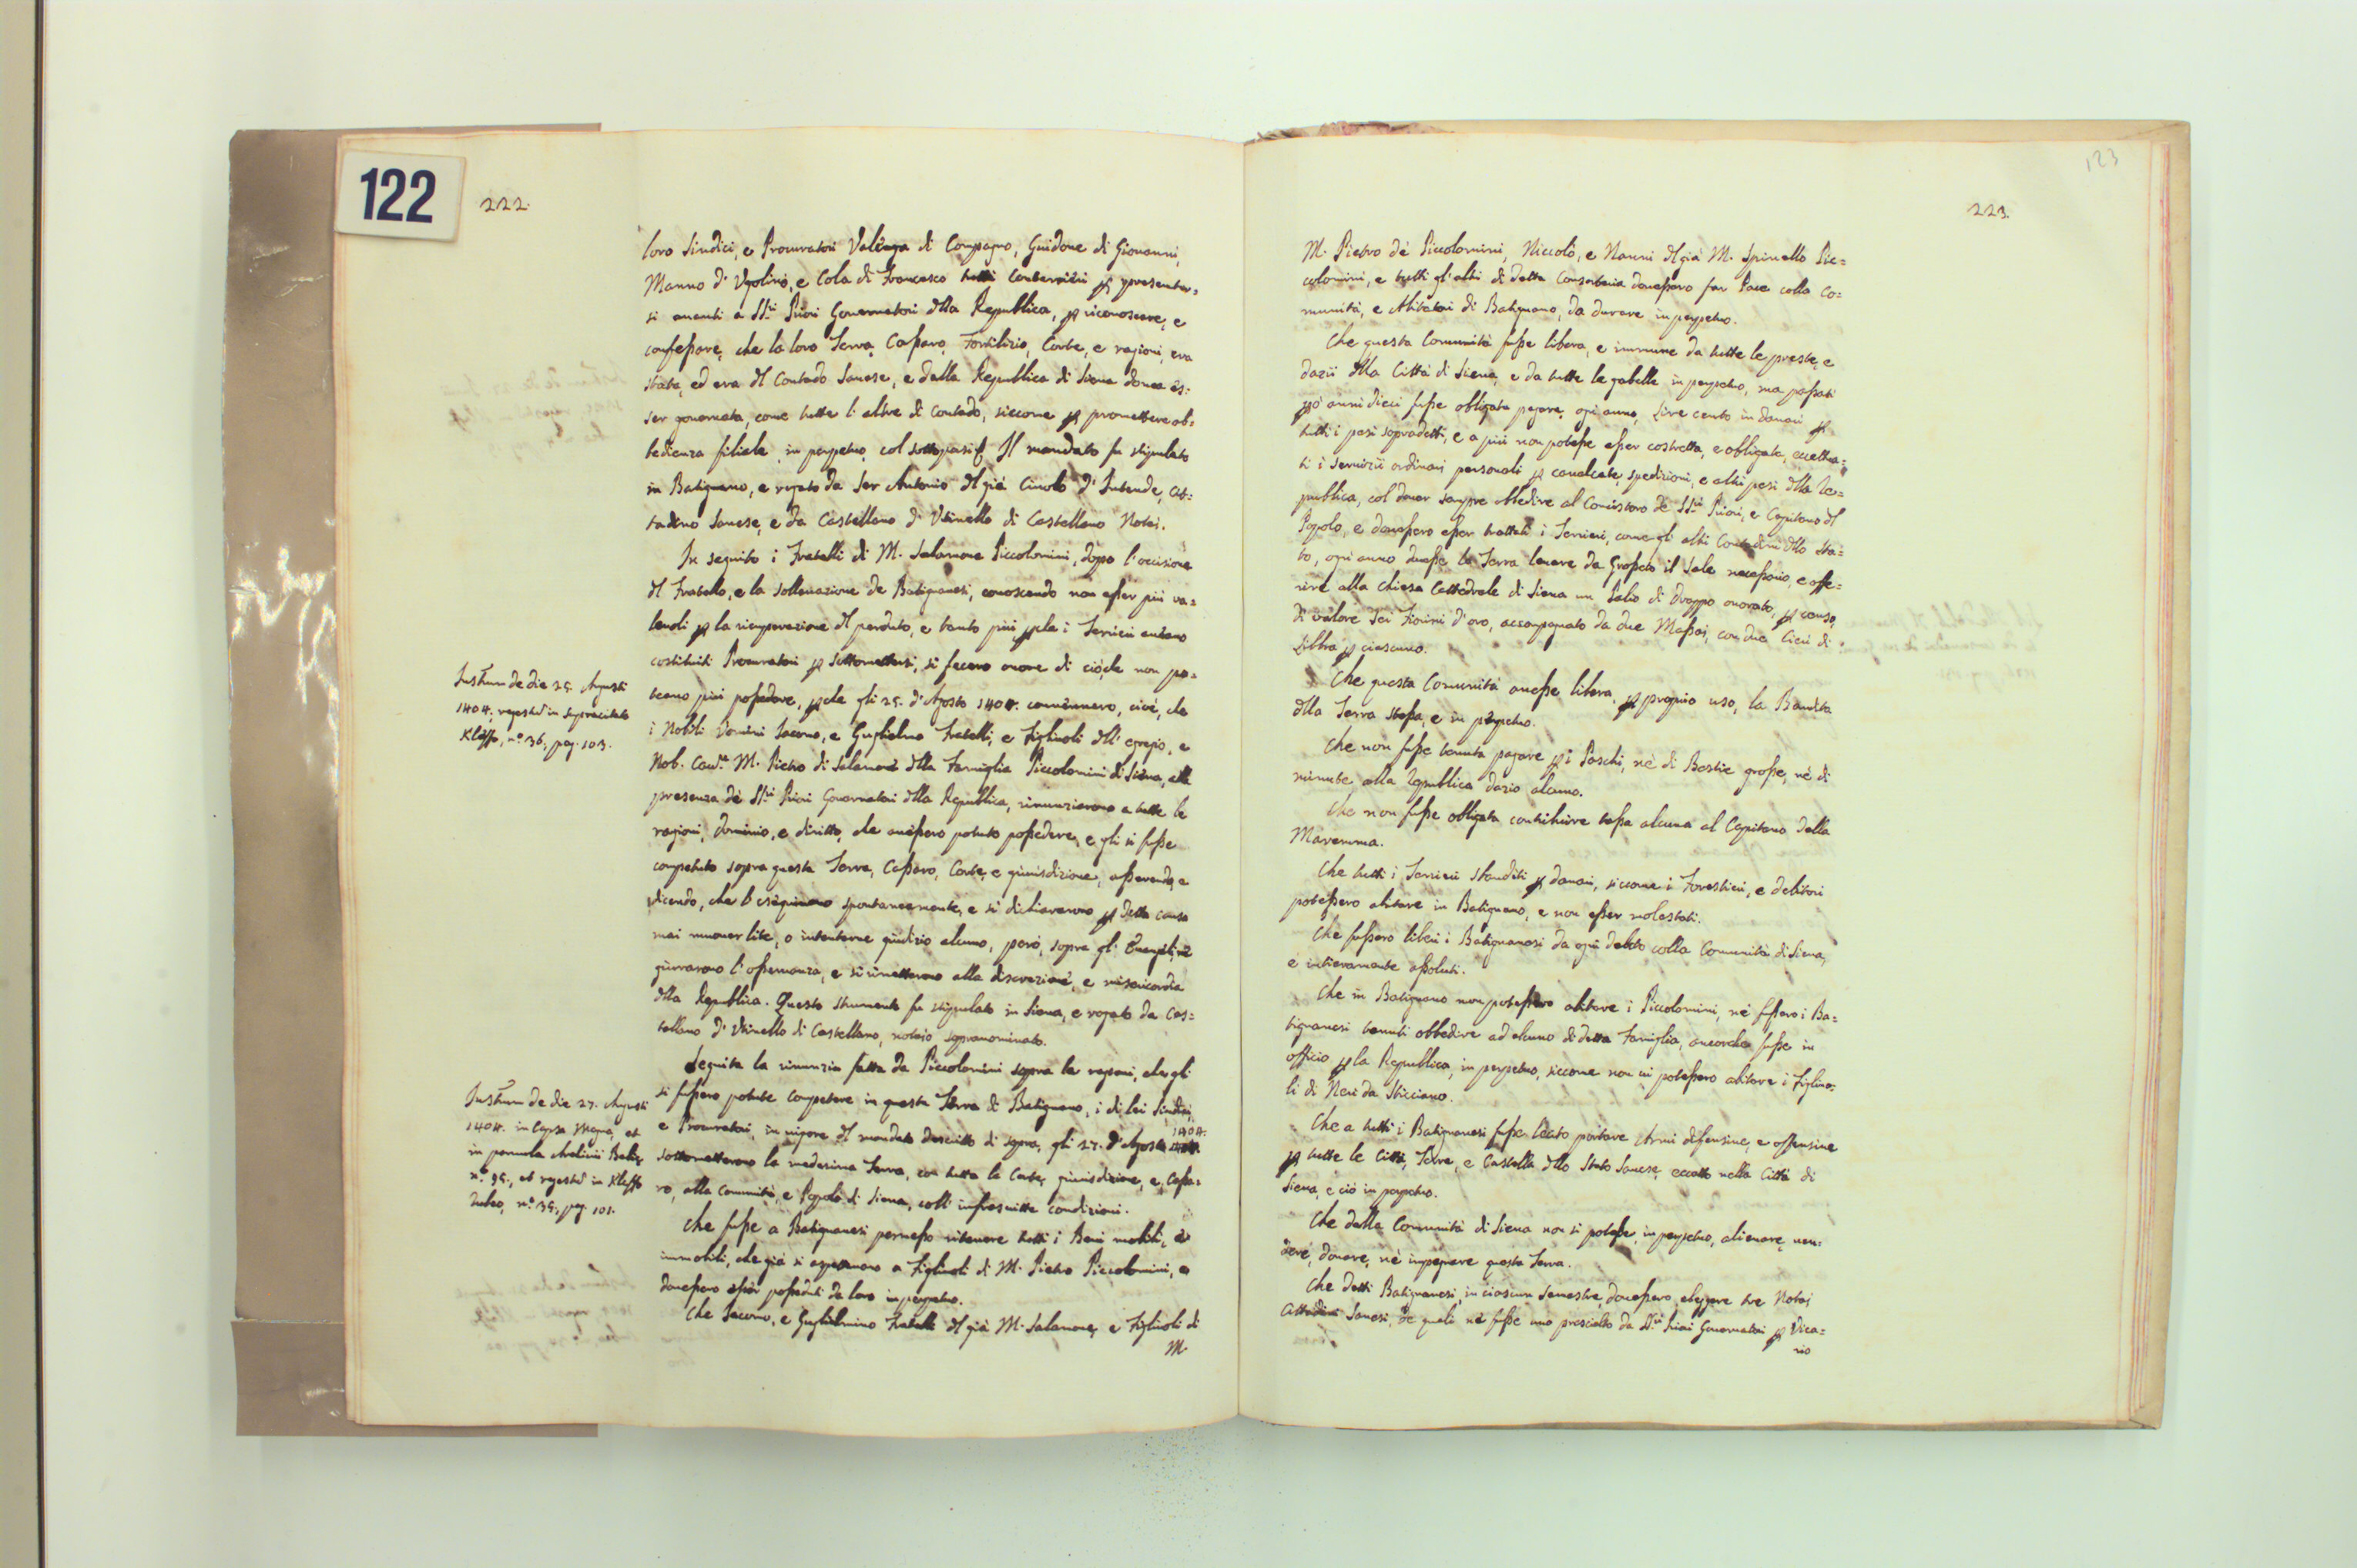 122
222.
loro Sindici, e Procuratori Valenza di Compagno, Guidone di Giovanni,
Manno d' Ugolino, e Cola di Francesco tutti Conterrieri p presentar=
si avanti a SS.ri Priori Governatori dlla Republica, p riconoscere, e
confessare, che la loro Terra, Cassaro, Fortilizio, Corte, e ragioni, era
stata, ed era dl Contado Sanese, e dalla Republica di Siena dovea es=
ser governata, come tutte l' altre di Contado, siccome p promettere ob=
bedienza filiale, in perpetuo, col sottoporsi. Il mandato fu stipulato
in Batignano, e rogato da Ser Antonio dl già Cinolo d' Intende, Cit=
tadino Sanese, e da Castellano d' Utinello di Castellano Notai.
In seguito i Fratelli di M. Salamone Piccolomini, doppo l' occisione
dl Fratello, e la sollevazione de Batignanesi, conoscendo non esser più va=
levoli p la ricuperazione dl perduto, e tanto più, pche i Terrieri aveano
costituiti Procuratori p sottomettersi, si fecero onore di ciò, che non po=
teano più possedere, pche gli 25. d' Agosto 1404. convennero, cioè, che
i Nobili Uomini Iacomo, e Guglielmo Fratelli, e Figliuoli dll' egregio, e
Nob. Cav.re M. Pietro di Salamone dlla Famiglia Piccolomini di Siena, alla
presenza de SS.ri Priori Governatori dlla Republica, rinunziarono a tutte le
ragioni, dominio, e diritto, che avessero potuto possedere, e gli si fusse
competuto sopra questa Terra, Cassaro, Corte, e giurisdizione, asserendo, e
dicendo, che l' eseguivano spontaneamente, e si dichiararono p detta causa
mai muover lite, o intentarne giudizio alcuno, però, sopra gli Evangeli, ne
giurarono l' osservanza, e si rimetterono alla discrezione, e misericordia
dlla Republica. Questo strumento fu stipulato in Siena, e rogato da Cas=
tellano d' Utinello di Castellano, notaio sopranominato.
Seguita la rinunzia fatta da Piccolomini sopra le ragioni, che gli
si fussero potute competere in questa Terra di Batignano, i di lei Sindici,
e Procuratori, in vigore dl mandato descritto di sopra, gli 27. d' Agosto 1404.
sottometterono la medesima Terra, con tutta la Corte, giurisdizione, e Cassa=
ro, alla Comunità, e Popolo di Siena, coll' infrascritte condizioni.
Che fusse a Batignanesi permesso ritenere tutti i Beni mobili, ed
immobili, che già si aspettavano a Figliuoli di M. Pietro Piccolomini, e
dovessero esser posseduti da loro in perpetuo.
Che Iacomo, e Guglielmino Fratelli dl già M. Salamone, e Figliuoli di
M.
Instrum de die 25. Augusti
1404. regestum in supracitato
Kleffo, n.o 36. pag. 103.
Instrum de die 27. Augusti
1404. in Capsa Magna, et
in
n.o 95., et regestum in Kleffo
rubeo, n.o 35., pag. 101.
123
223.
M. Pietro de Piccolomini, Niccolò, e Nanni dl già M. Spinello Pic=
colomini, e tutti gl' altri di detta Consorteria dovessero far Pace colla Co=
munità, e Abitatori di Batignano, da durare in perpetuo.
Che questa Comunità fusse libera, e immune da tutte le preste, e
dazii dlla Città di Siena, e da tutte le gabelle in perpetuo, ma passati
pò anni dieci fusse obligata pagare, ogi anno, Lire cento in danari p
tutti i pesi sopradetti, e a più non potesse esser costretta, e obligata, eccettua=
ti i servizii ordinari personali p cavalcate, spedizioni, e altri pesi dlla Re=
publica, col dover sempre obbedire al Concistoro de SS.ri Priori, e Capitano dl
Popolo, e dovessero esser trattati i Terrieri, come gl' altri Contadini dllo Sta=
to, ogni anno dovesse la Terra levare da Grosseto il Sale necessario, e offe=
rire alla Chiesa Cattedrale di Siena un Palio di Drappo onorato, p censo,
di valore sei Fiorini d' oro, accompagnato da due Massai, con due Ceri di
Libbra p ciascuno.
Che questa Comunità avesse libera, p proprio uso, la Bandita
dlla Terra stessa, e in perpetuo.
Che non fusse tenuta pagare p i Paschi, nè di Bestie grosse, nè di
minute alla Republica dazio alcuno.
Che non fusse obligata contribuire tassa alcuna al Capitano della
Maremma.
Che tutti i Terrieri sbanditi p danari, siccome i Forestieri, e debitori
potessero abitare in Batignano, e non esser molestati.
Che fussero liberi i Batignanesi da ogni debito colla Comunità di Siena,
e intieramente assoluti.
Che in Batignano non potessero abitare i Piccolomini, nè fussero i Ba=
tignanesi tenuti obbedire ad alcuno di detta Famiglia, ancorche fusse in
officio p la Republica, in perpetuo, siccome non vi potessero abitare i Figliuo=
li di Neri da Sticciano.
Che a tutti i Batignanesi fusse lecato portare Armi difensive, e offensive
p tutte le Città, Terre, e Castella dllo Stato Sanese, eccetto nella Città di
Siena, e ciò in perpetuo.
Che dalla Comunità di Siena non si potesse, in perpetuo, alienare, ven=
dere, donare, nè impegnare questa Terra.
Che detti Batignanesi, in ciascun semestre, dovessero eleggere tre Notai
Cittadini Sanesi, de quali ne fusse uno prescielto da SS.ri Priori Governatori p Vica=
rio